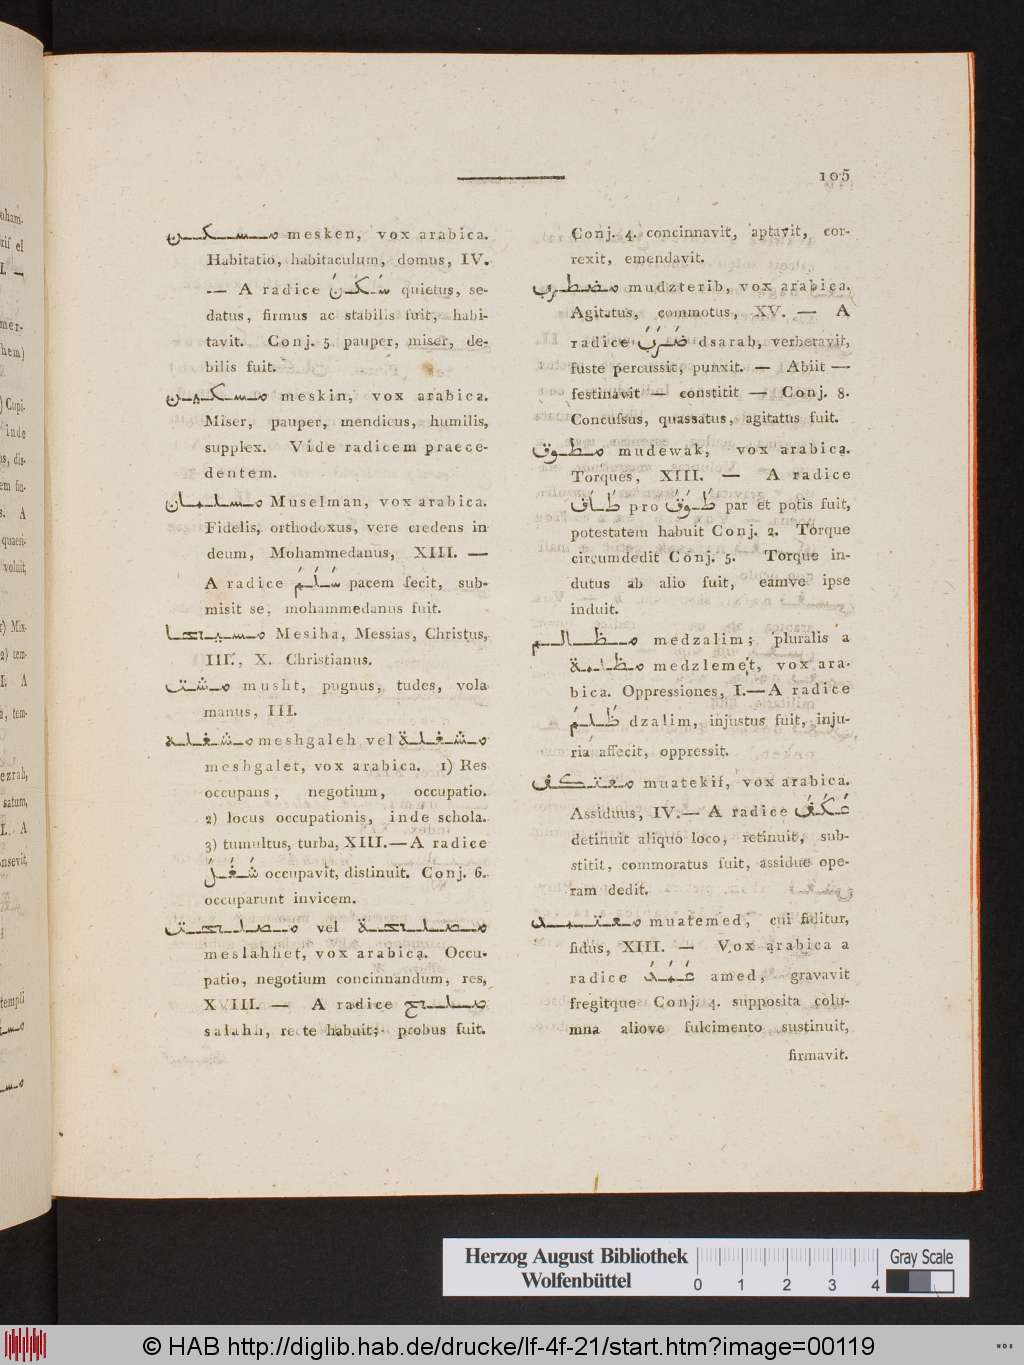 105
مسكن mesken, vox arabica.
Habitatio, habitaculum, domus, IV.
— A radice سَكَنَ quietus, se-
datus, firmus ac stabilis fuit, habi-
tavit. Conj. 5 pauper, miser, de-
bilis fuit.
مسكين meskin, vox arabica.
Miser, pauper, mendicus, humilis,
supplex. Vide radicem praece-
dentem.
مسلمان Muselman, vox arabica.
Fidelis, orthodoxus, vere credens in
deum, Mohammedanus, XIII. —
A radice سَلَمَ pacem fecit, sub-
misit se, mohammedanus fuit.
مسيحا Mesiha, Messias, Christus,
III., X. Christianus.
مشت musht, pugnus, tudes, vola
manus, III.
مشغله meshgaleh vel مشغلة
meshgalet, vox arabica. 1) Res
occupans, negotium, occupatio.
2) locus occupationis, inde schola.
3) tumultus, turba, XIII. — A radice
شَغَلَ occupavit, distinuit. Conj. 6.
occuparunt invicem.
مصلحت vel مصلحة
meslahhet, vox arabica. Occu-
patio, negotium concinnandum, res,
XVIII. — A radice صلح
salahh, recte habuit; probus fuit.
Conj. 4. concinnavit, aptavit, cor-
rexit, emendavit.
مضطرب mudzterib, vox arabica.
Agitatus, commotus, XV. — A
radice ضَرَبَ dsarab, verberavit,
fuste percussit, punxit. — Abiit —
festinavit — constitit — Conj. 8.
Concussus, quassatus, agitatus fuit.
مطوق mudewak, vox arabica.
Torques, XIII. — A radice
طَاقَ pro طَوَقَ par et potis fuit,
potestatem habuit Conj. 2. Torque
circumdedit Conj. 5. Torque in-
dutus ab alio fuit, eamve ipse
induit.
مظالم medzalim; pluralis a
مظلمة medzlemet, vox ara-
bica. Oppressiones, I. — A radice
ظَلَمَ dzalim, injustus fuit, inju-
ria affecit, oppressit.
معتكف muatekif, vox arabica.
Assiduus, IV. — A radice عَكَفَ
detinuit aliquo loco, retinuit, sub-
stitit, commoratus fuit, assidue ope-
ram dedit.
معتمد muatemed, cui fiditur,
fidus, XIII. — Vox arabica a
radice عَمَدَ amed, gravavit
fregitque Conj. 4. supposita colu-
mna aliove fulcimento sustinuit,
firmavit.
Herzog August Bibliothek
Wolfenbüttel
0 1 2 3 4
Gray Scale
© HAB http://diglib.hab.de/drucke/lf-4f-21/start.htm?image=00119